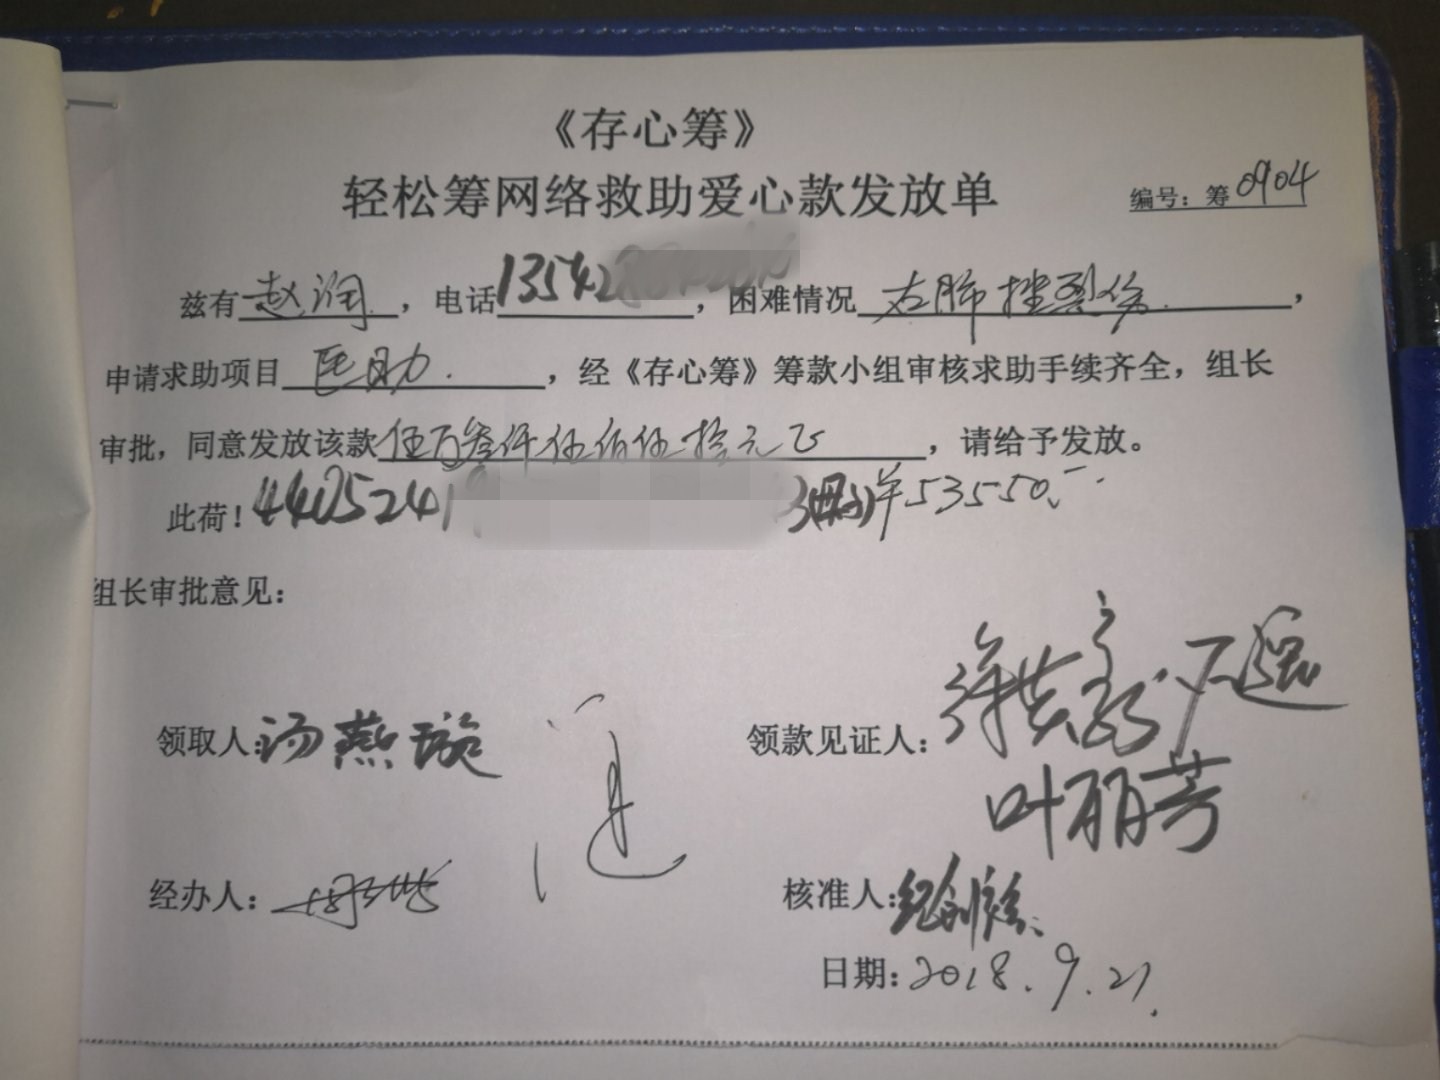 《存心筹》
轻松筹网络救助爱心款发放单
编号：筹0904
兹有赵润，电话13542，困难情况右肺挫裂伤，
申请求助项目医助.，经《存心筹》筹款小组审核求助手续齐全，组长
审批，同意发放该款伍万叁仟伍佰伍拾元正，请给予发放。
此荷！44052419 3(母)¥53550.-
组长审批意见：
领取人：汤燕璇 领款见证人：
叶丽芳
经办人： 核准人：
日期：2018.9.21.